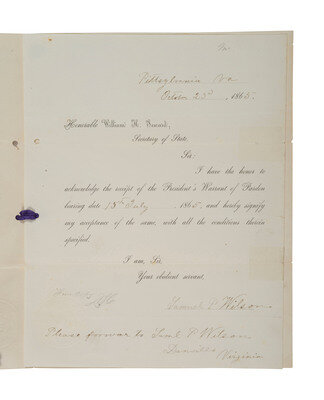 Pittsylvania Va
October 23d, 1865.
Honorable William H. Seward,
Secretary of State.
Sir:
I have the honor to
acknowledge the receipt of the President's Warrant of Pardon
bearing date 15th July, 1865, and hereby signify
my acceptance of the same, with all the conditions therein
specified.
I am, Sir,
Your obedient servant,
Samuel P. Wilson.
Please forward to Saml P Wilson
Danville
Virginia